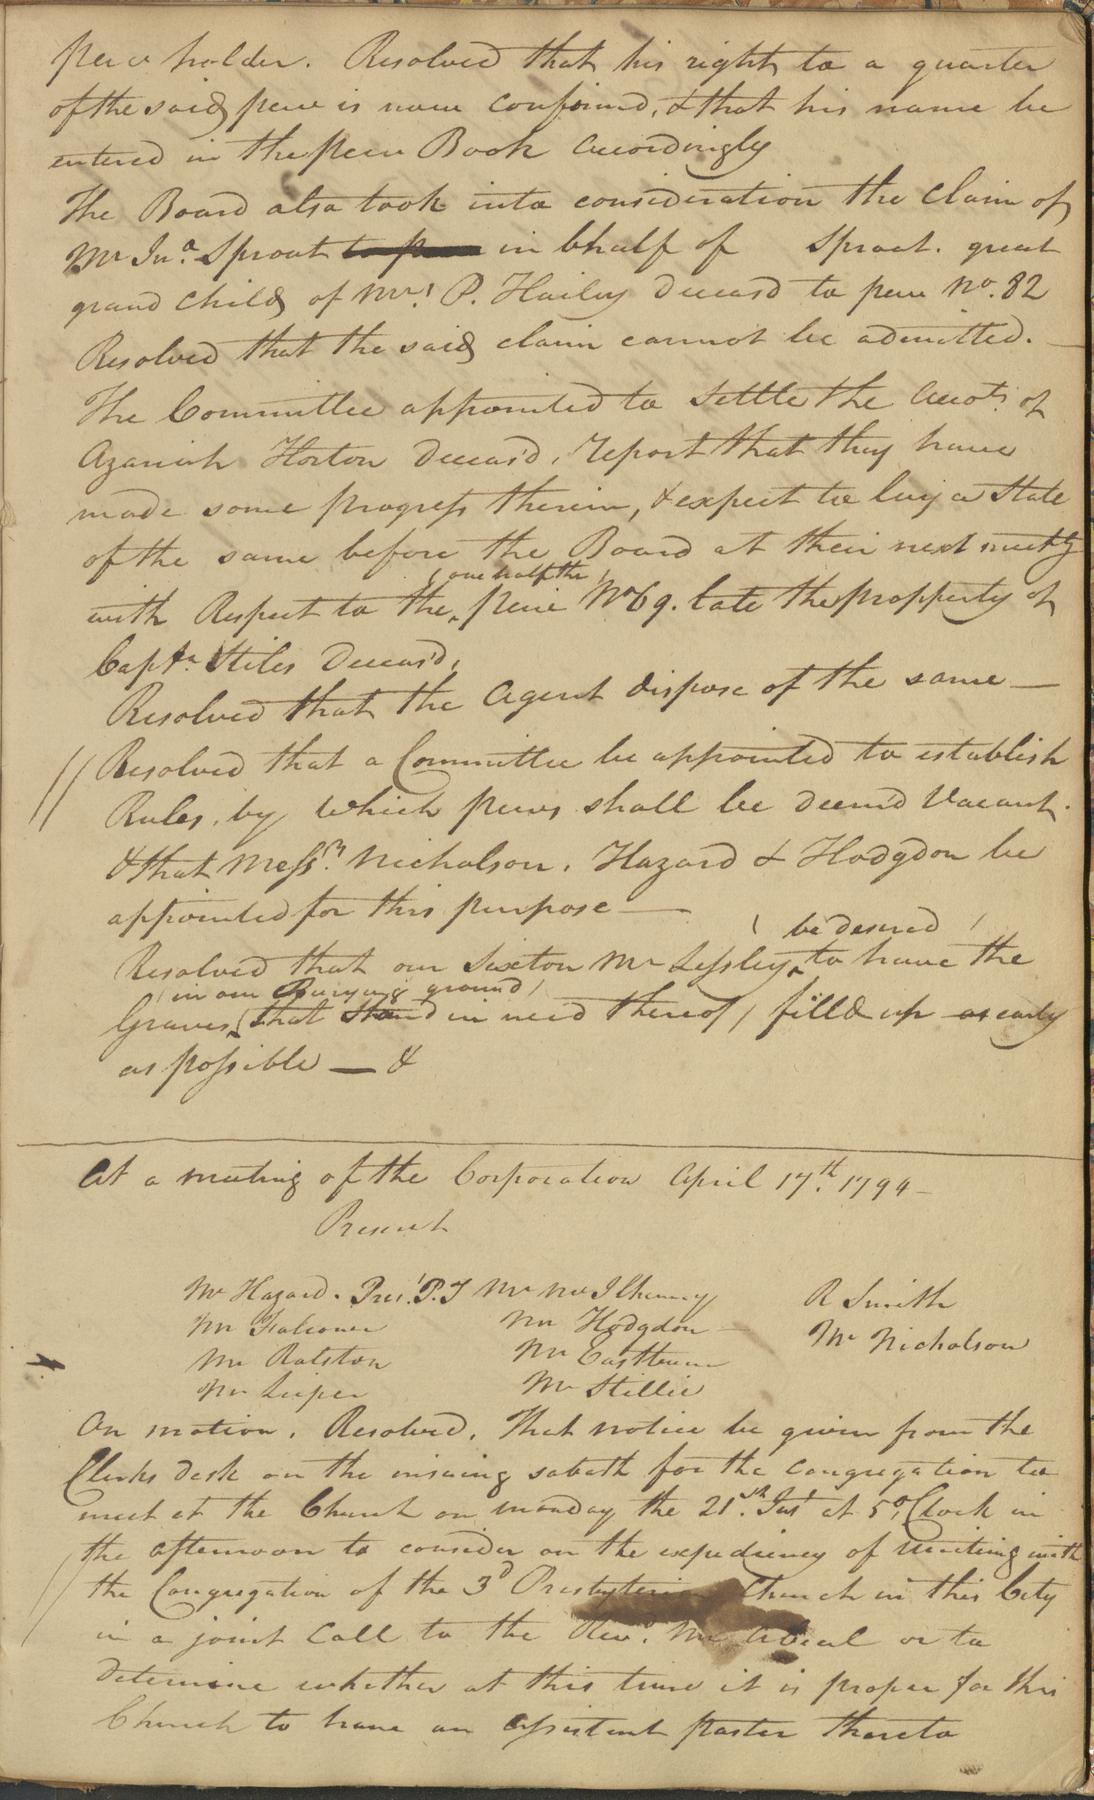 pew holder. Resolved that his right to a quarter
of the said pew is now confirmd, & that his name be
entered in the pew Book accordingly
The Board also took into consideration the Claim of
Mr Jno. Sproat in bhalf of Sproat. great
grand child of Mrs. P. Hailey deceasd to pew No. 82
Resolved that the said claim cannot be admitted.
The Committee appointed to Settle the Accots. of
Azariah Horton deceas'd, report that they have
made some progress therein, & expect to lay a State
of the same before the Board at their next meetg
one half the
with Respect to the pew No 69. late the propperty of
Captn. Stiles Deceas'd,
Resolved that the Agent dispose of the same —
Resolved that a Committee be appointed to establish
Rules, by which pews shall be deem'd Vacant.
& that Messrs. Nicholson, Hazard & Hodgdon be
appointed for this purpose —
be desired
Resolved that our Sexton Mr Lessley to have the
in our Burying ground
Graves (that stand in need thereof) fill'd up as early
as possible — &
At a meeting of the Corporation April 17th. 1794—
Present
Mr Hazard. Pres. P.T Mr McIlhenny R Smith
Mr Falconer Mr Hodgdon Mr Nicholson
Mr Ralston Mr Eastburn
Mr Leiper Mr Stillie
On motion. Resolved, That notice be given from the
Clerks desk on the insuing sabath for the congregation to
meet at the Church on monday the 21st. Inst at 5 o,Clock in
the afternoon to consider on the expediency of Uniting with
the Congregation of the 3d Presbyterian Church in this City
in a joint Call to the Revd. Mr Abeal or to
determine whether at this time it is proper for this
Church to have an assistent paster thereto